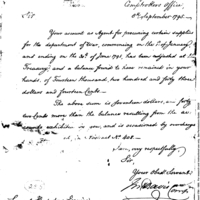 Comptrollers Office,
8th September 1795.
Sir
Your account as Agent for procuring certain supplies
for the department of War, commencing on the 1st of January,
and ending on the 30th of June 1795, has been adjusted at the
Treasury, and a balance found to have remained in your
hands, of Fourteen thousand, two hundred and forty three
dollars and fourteen Cents.
The above sum is seventeen dollars, forty
two Cents more than the balance resulting from the
accounts exhibited in you, and is occasioned by overcharge
in Abstract No.
I am, very respectfully
Sir,
Your Obedt Servant
Jn Davis